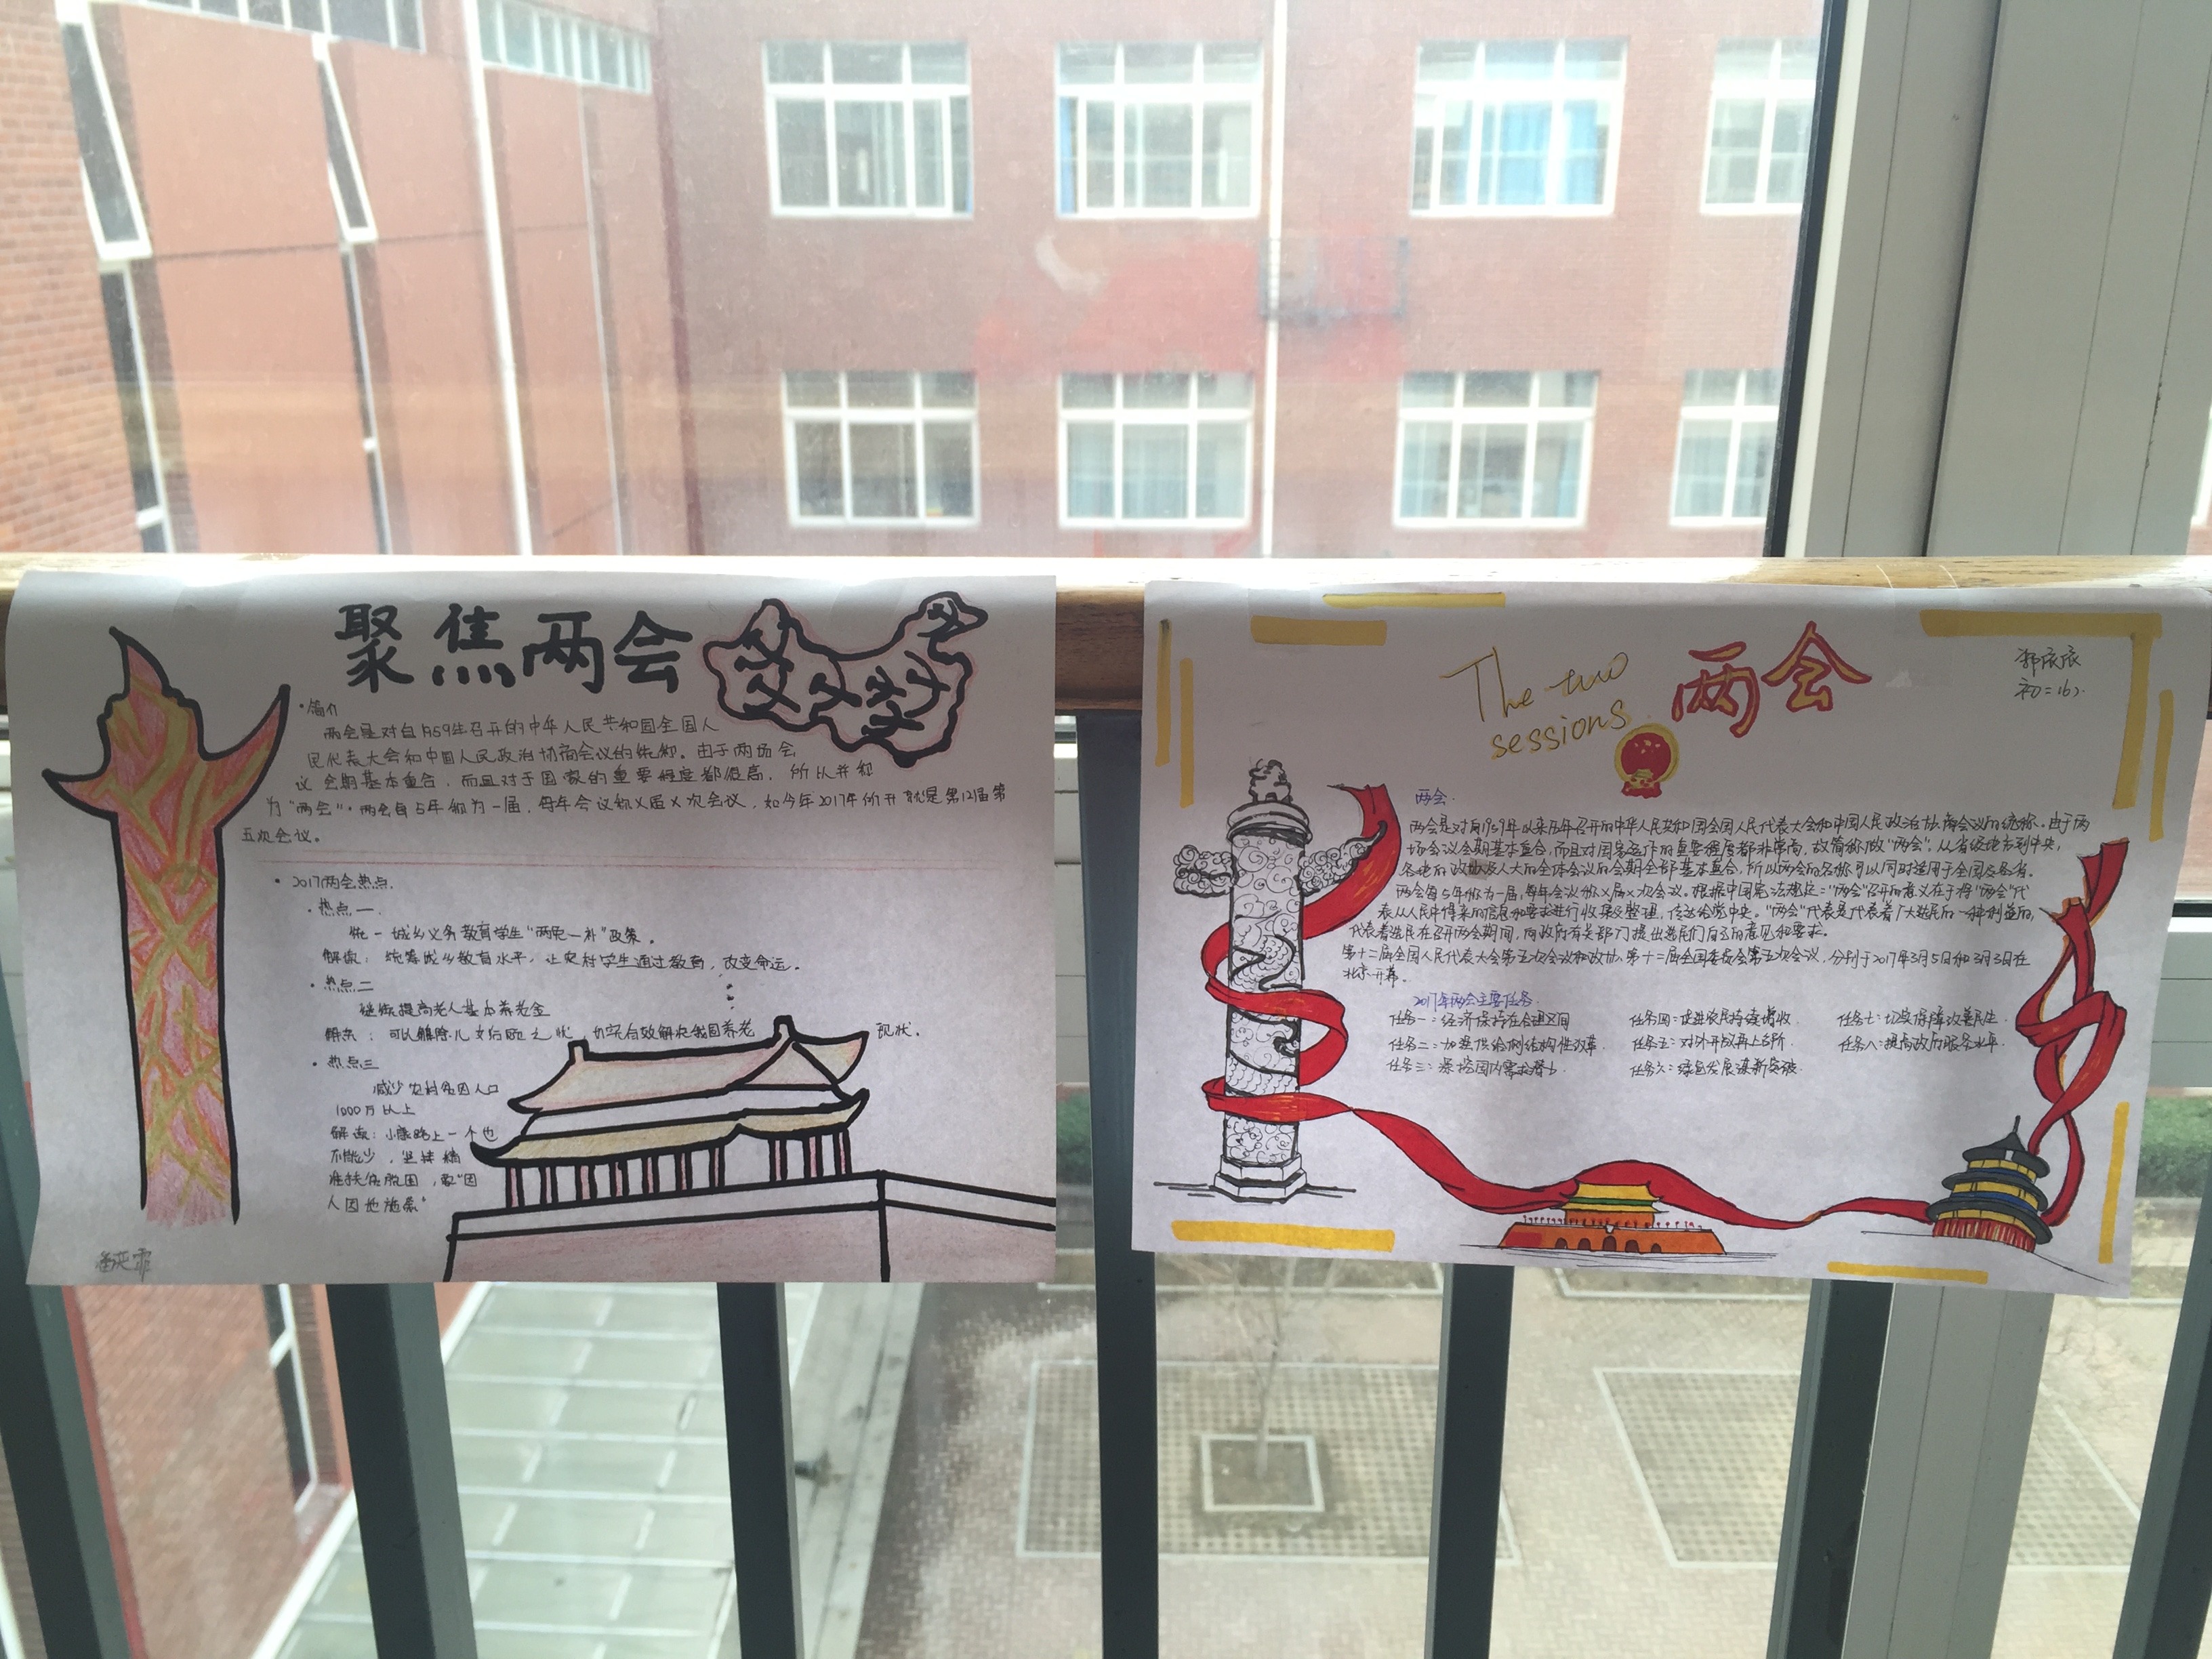 聚焦两会
·简介
两会是对自1959年召开的中华人民共和国全国人
民代表大会和中国人民政治协商会议的统称。由于两场会
议会期基本重合,而且对于国家的重要程度都很高,所以并称
为"两会"。两会自5年称为一届,每年会议称X届X次会议,如今年2017年所开就是第12届第
五次会议。
·2017两会热点.
·热点一.
统一城乡义务教育学生"两免一补"政策。
解读:统筹城乡教育水平,让农村学生通过教育,改变命运。
·热点二
继续提高老人基本养老金
解读:可以解除儿女后顾之忧,切实有效解决我国养老 现状.
·热点三
减少农村贫困人口
1000万以上
解读:小康路上一个也
不能少,坚持精
准扶贫脱困,要"因
人因地施策"
The two
sessions
两会
初二(6).
两会.
两会是对自1959年以来历年召开的中华人民共和国全国人民代表大会和中国人民政治协商会议的统称.由于两
场会议会期基本重合,而且对国家运作的重要程度都非常高,故简称做"两会".从省级地方到中央,
各地的政协及人大的全体会议的会期全部基本重合,所以两会的名称可以同时适用于全国及各省.
两会每5年称为一届,每年会议称X届X次会议.根据中国宪法规定:"两会"召开的意义在于将"两会"代
表从人民中得来的信息和要求进行收集及整理,传达给党中央."两会"代表是代表着广大选民的一种利益的,
代表着选民在召开两会期间,向政府有关部门提出选民们自己的意见和要求.
第十二届全国人民代表大会第五次会议和政协第十二届全国委员会第五次会议,分别于2017年3月5日和3月3日在
北京开幕.
2017年两会主要任务.
任务一:经济保持在合理区间 任务四:促进农民持续增收. 任务七:切实保障改善民生.
任务二:加强供给侧结构性改革. 任务五:对外开放再上台阶. 任务八:提高政府服务水平.
任务三:深挖国内需求潜力. 任务六:绿色发展谋新突破.